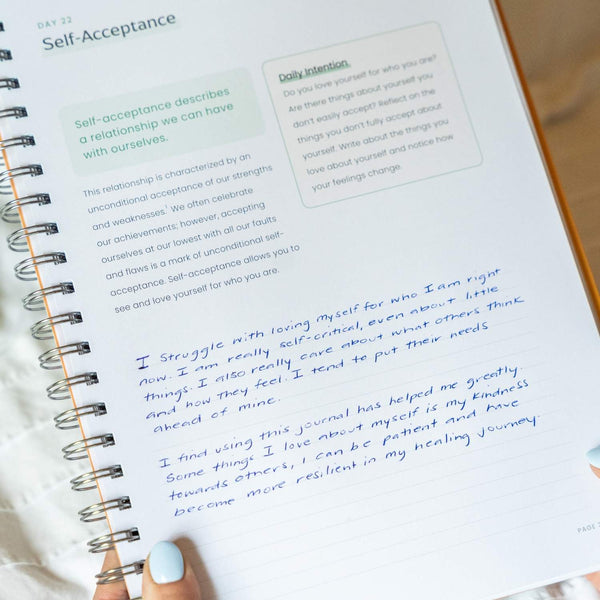 DAY 22
Self-Acceptance
Self-acceptance describes
a relationship we can have
with ourselves.
This relationship is characterized by an
unconditional acceptance of our strengths
and weaknesses.¹ We often celebrate
our achievements; however, accepting
ourselves at our lowest with all our faults
and flaws is a mark of unconditional self-
acceptance. Self-acceptance allows you to
see and love yourself for who you are.
Daily Intention
Do you love yourself for who you are?
Are there things about yourself you
don't easily accept? Reflect on the
things you don't fully accept about
yourself. Write about the things you
love about yourself and notice how
your feelings change.
I struggle with loving myself for who I am right
now. I am really self-critical, even about little
things. I also really care about what others think
and how they feel. I tend to put their needs
ahead of mine.
I find using this journal has helped me greatly.
Some things I love about myself is my kindness
towards others, I can be patient and have
become more resilient in my healing journey.
PAGE